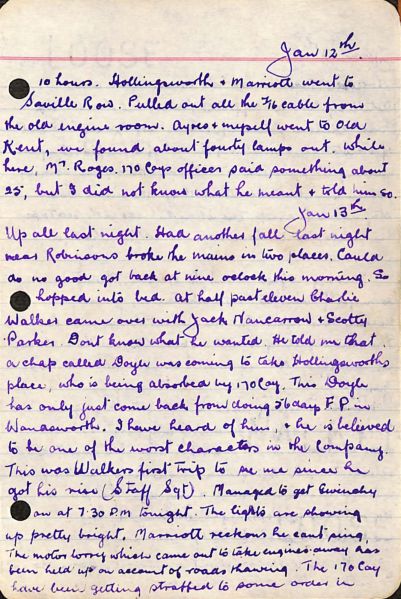 Jan 12th.
10 hours. Hollingsworth & Marriott went to
Saville Row. Pulled out all the 7/16 cable from
the old engine room. Ayres & myself went to Old
Kent, we found about fourty lamps out, while
here, Mr. Roges. 170 Coys officer said something about
25, but I did not know what he meant & told him so.
Jan 13th.
Up all last night. Had another fall last night
near Robinsons broke the mains in two places. Could
do no good got back at nine oclock this morning. So
hopped into bed. at half past eleven Charlie
Walker came over with Jack Nancarrow & Scotty
Parkes. Dont know what he wanted. He told me that
a chap called Doyle was coming to take Hollingsworths
place, who is being absorbed by 170 Coy. This Doyle
has only just come back from doing 56 days F.P. in
Wandsworth. I have heard of him, & he is believed
to be one of the worst characters in the Company.
This was Walkers first trip to see me since he
got his rise (Staff Sgt). Managed to get Cuinchy
on at 7.30 P.M tonight. The lights are showing
up pretty bright. Marriott reckons he cant ring,
The motor lorry which came out to take engines away has
been held up on account of roads thawing. The 170 Coy
have been getting strafed to some order in